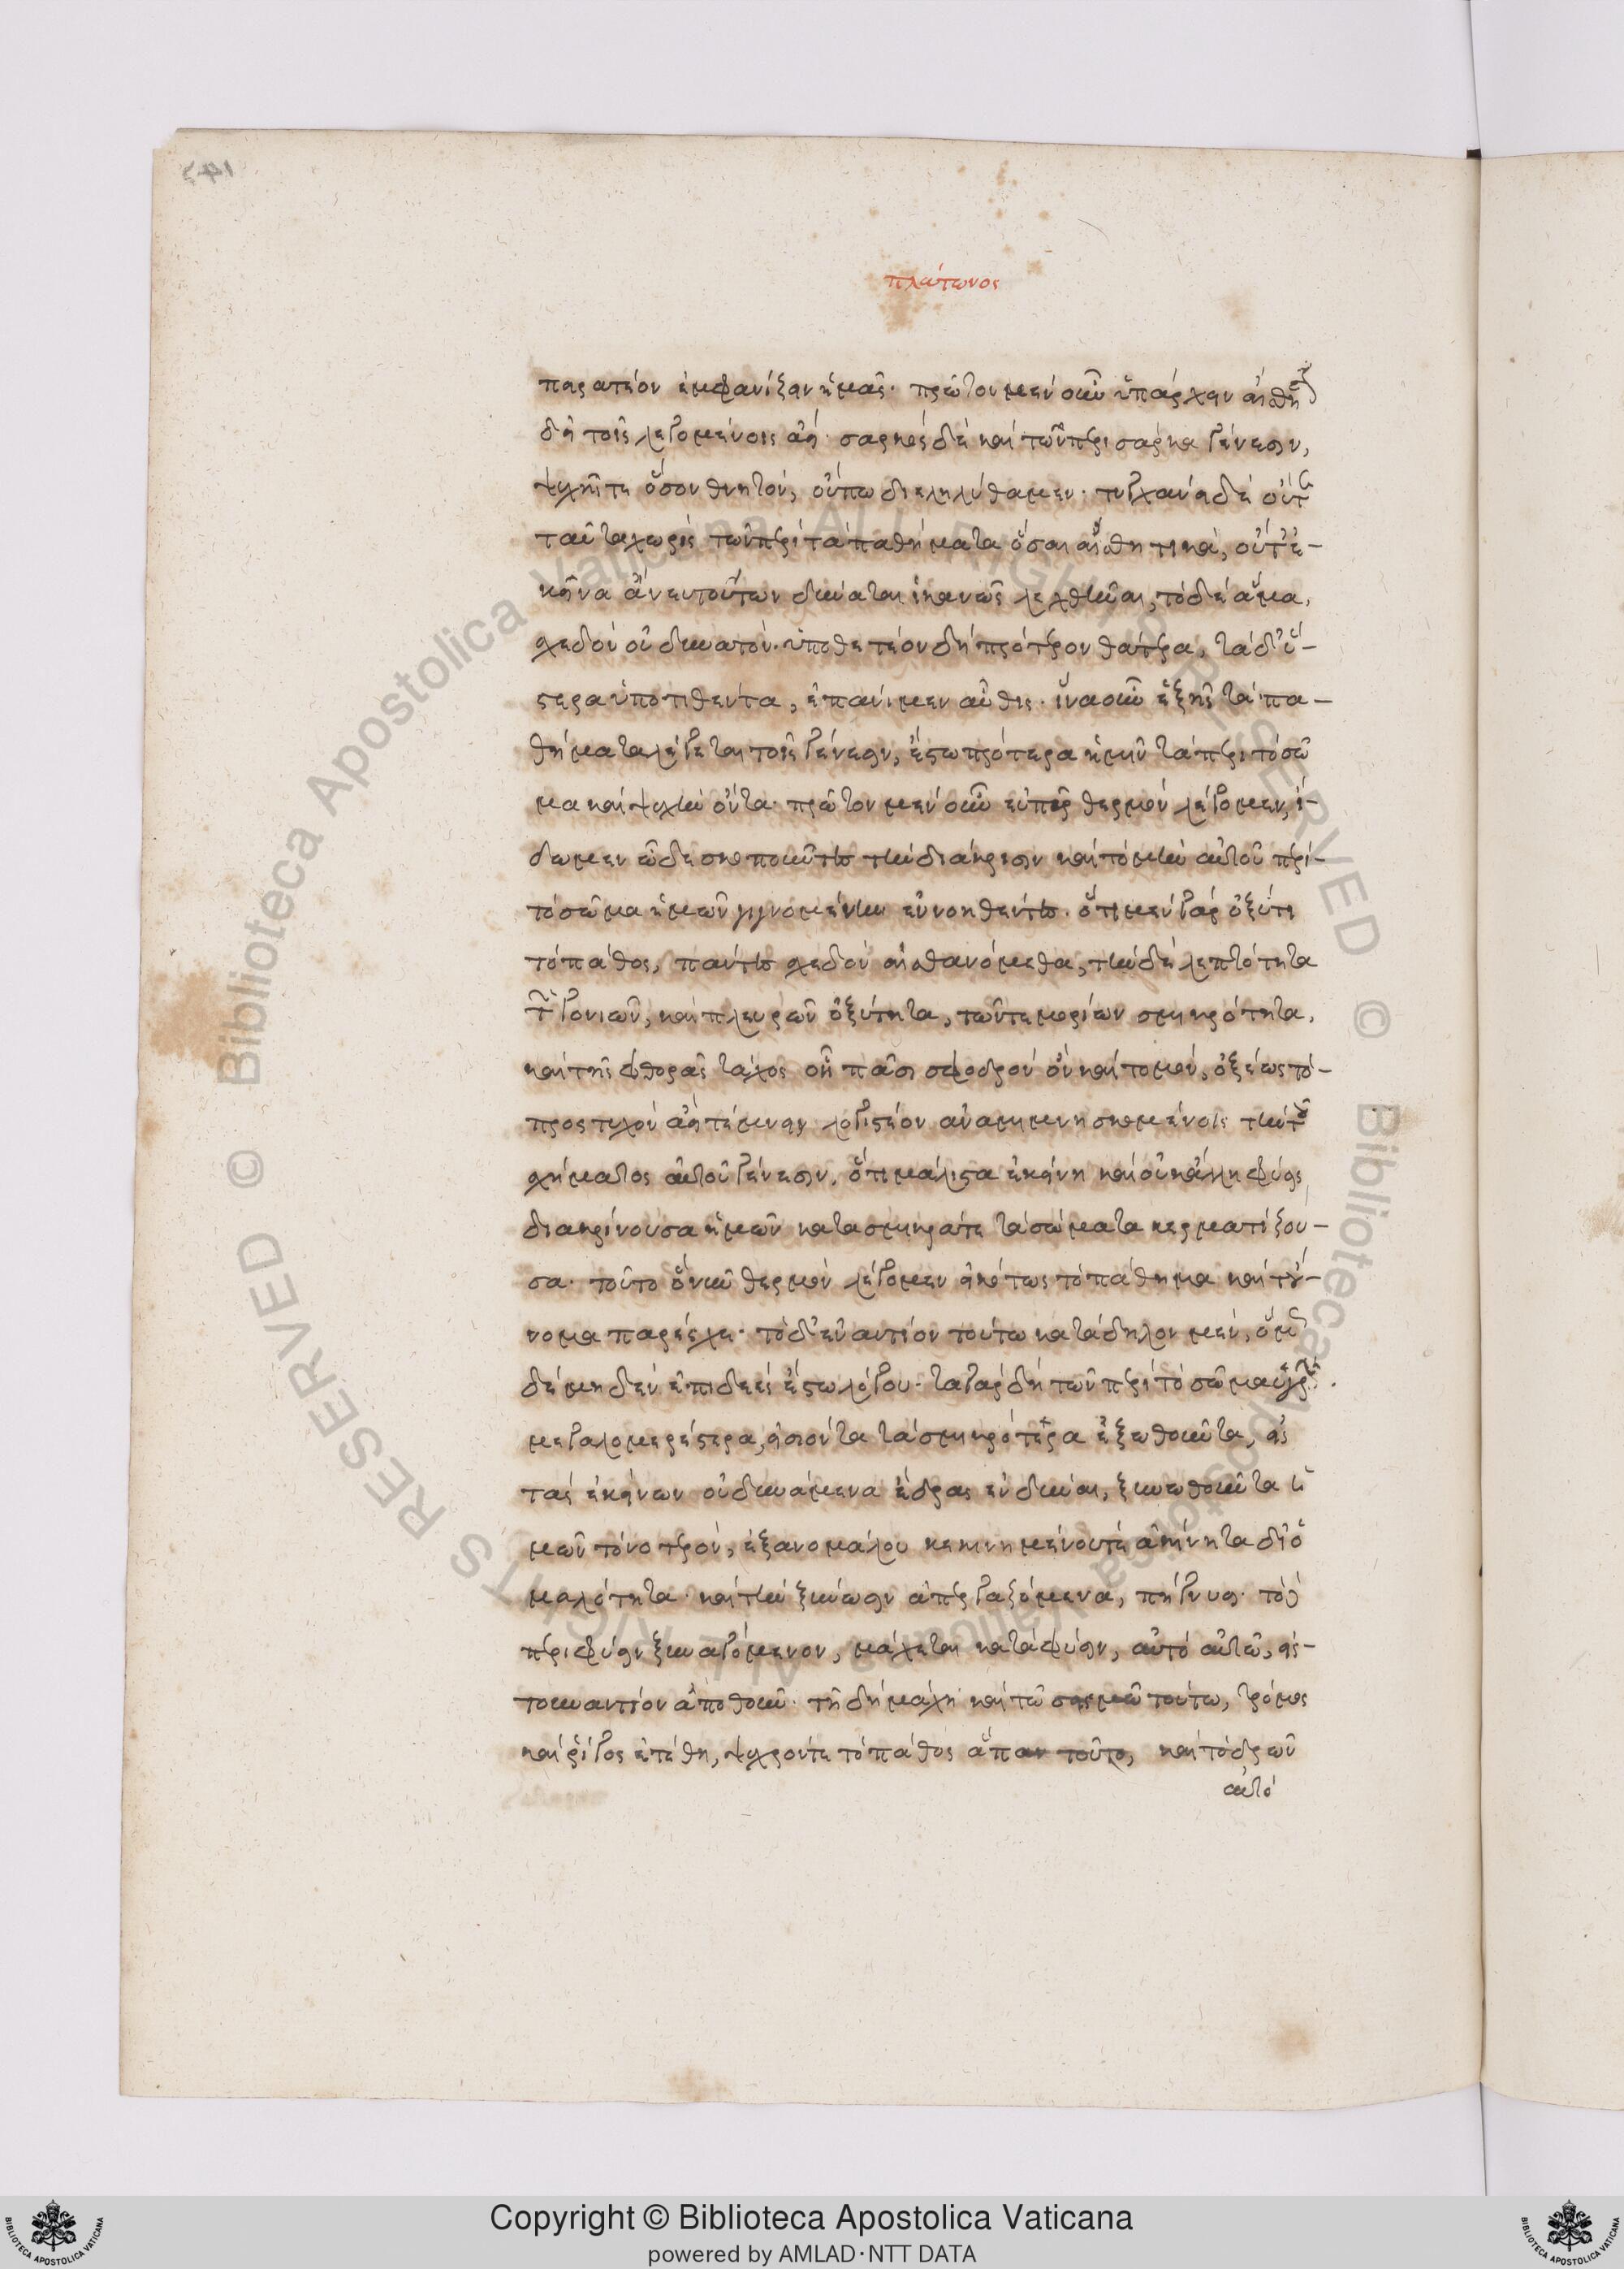 πλάτωνος
πειρατέον ἐμφανίζειν ἡμᾶς· πρῶτον μὲν οὖν ὑπάρχειν αἴσθησιν
δεῖ τοῖς λεγομένοις ἀεί· σαρκὸς δὲ καὶ τῶν περὶ σάρκα γένεσιν,
ψυχῆς τε ὅσον θνητὸν, οὔπω διεληλύθαμεν· τυγχάνει δὲ οὔτε
ταῦτα χωρὶς τῶν περὶ τὰ παθήματα ὅσα αἰσθητικὰ, οὔτ' ἐ-
κεῖνα ἄνευ τούτων δυνατὰ ἱκανῶς λεχθῆναι, τὸ δὲ ἅμα,
σχεδὸν οὐ δυνατόν. ὑποθετέον δὴ πρότερον θάτερα, τὰ δ' ὕ-
στερα ὑποτιθέντα, ἐπάνιμεν αὖθις. ἵνα οὖν ἑξῆς τὰ πα-
θήματα λέγεται τοῖς γένεσιν, ἔστω πρότερα ἡμῖν τὰ περὶ τὸ σῶ
μα καὶ ψυχὴν ὄντα· πρῶτον μὲν οὖν εἰ πῦρ θερμὸν λέγομεν, ἴ-
δωμεν ὧδε σκοποῦντες τὴν διάκρισιν καὶ τομὴν αὐτοῦ περὶ-
τὸ σῶμα ἡμῶν γιγνομένην ἐννοηθέντες. ὅτι μὲν γὰρ ὀξύ τι
τὸ πάθος, πάντες σχεδὸν αἰσθανόμεθα, τὴν δὲ λεπτότητα
τῶν γονιῶν, καὶ πλευρῶν ὀξύτητα, τῶν τε μορίων σμικρότητα,
καὶ τῆς φθορᾶς τάχος οἷς πᾶσι σφοδρὸν ὂν καὶ τομὸν, ὀξέως τὸ-
προστυχὸν ἀεὶ τέμνειν λογιστέον ἀναμιμνησκομένοις τὴν τοῦ
σχήματος αὐτοῦ γένεσιν, ὅτι μάλιστα ἐκείνη καὶ οὐκ ἄλλη φύσις
διακρίνουσα ἡμῶν κατὰ σμικρά τε τὰ σώματα κερματίζου-
σα· τοῦτο ὃ νῦν θερμὸν λέγομεν εἰκότως τὸ πάθημα καὶ τοὔ-
νομα παρέσχε· τὸ δ' ἐναντίον τούτω κατάδηλον μὲν, ὅμως
δὲ μηδὲν ἐπιδεὲς ἔστω λόγου. τὰ γὰρ δὴ τῶν περὶ τὸ σῶμα ὑγρῶν.
μεγαλομερέστερα, εἰσιόντα τὰ σμικρότερα ἐξωθοῦντα, εἰς
τὰς ἐκείνων οὐ δυνάμενα ἕδρας ἐνδῦναι, ξυνωθοῦντα ἡ
μῶν τὸ νοτερὸν, ἐξ ἀνομάλου κεκινημένου τε ἀκίνητα δι' ὁ
μαλότητα· καὶ τὴν ξύνωσιν ἀπεργαζόμενα, πήγνυσι· τὸ δὲ
περὶ φύσιν ξυναγόμενον, μάχεται κατὰ φύσιν, αὐτὸ αὑτῶ, εἰς-
τοὐναντίον ἀποθοῦν· τῆ δὴ μάχη καὶ τῶ σεισμῶ τούτω, τρόμος
καὶ ῥῖγος ἐτέθη, ψυχρόν τε τὸ πάθος ἅπαν τοῦτο, καὶ τὸ δρῶν
αὐτὸ
Copyright © Biblioteca Apostolica Vaticana
powered by AMLAD·NTT DATA